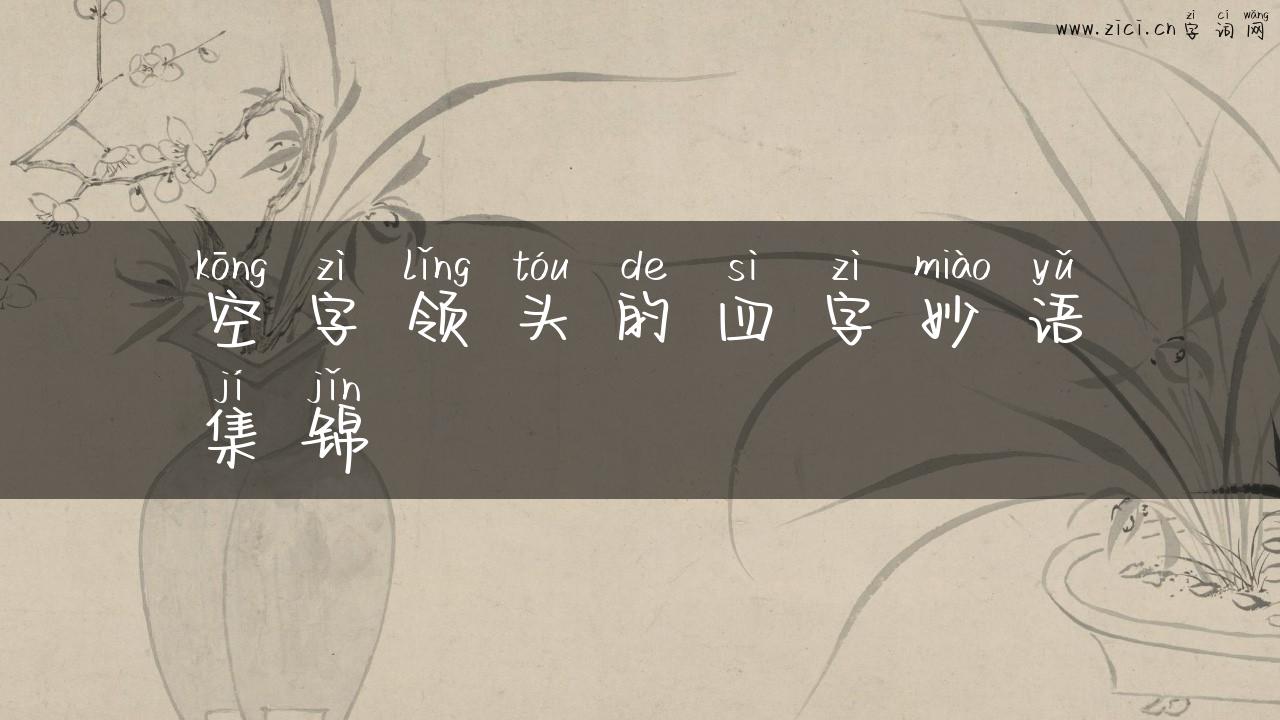 zì cí wǎng
www.zici.cn 字词网
kōng zì lǐng tóu de sì zì miào yǔ
空字领头的四字妙语
jí jǐn
集锦